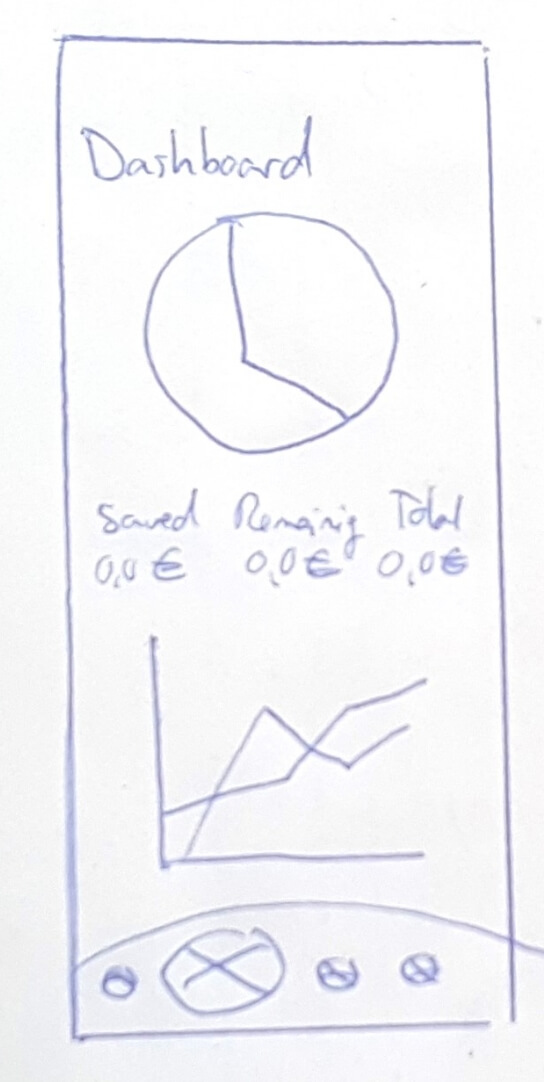 Dashboard
Saved Remainig Total
0,0 € 0,0 € 0,0 €